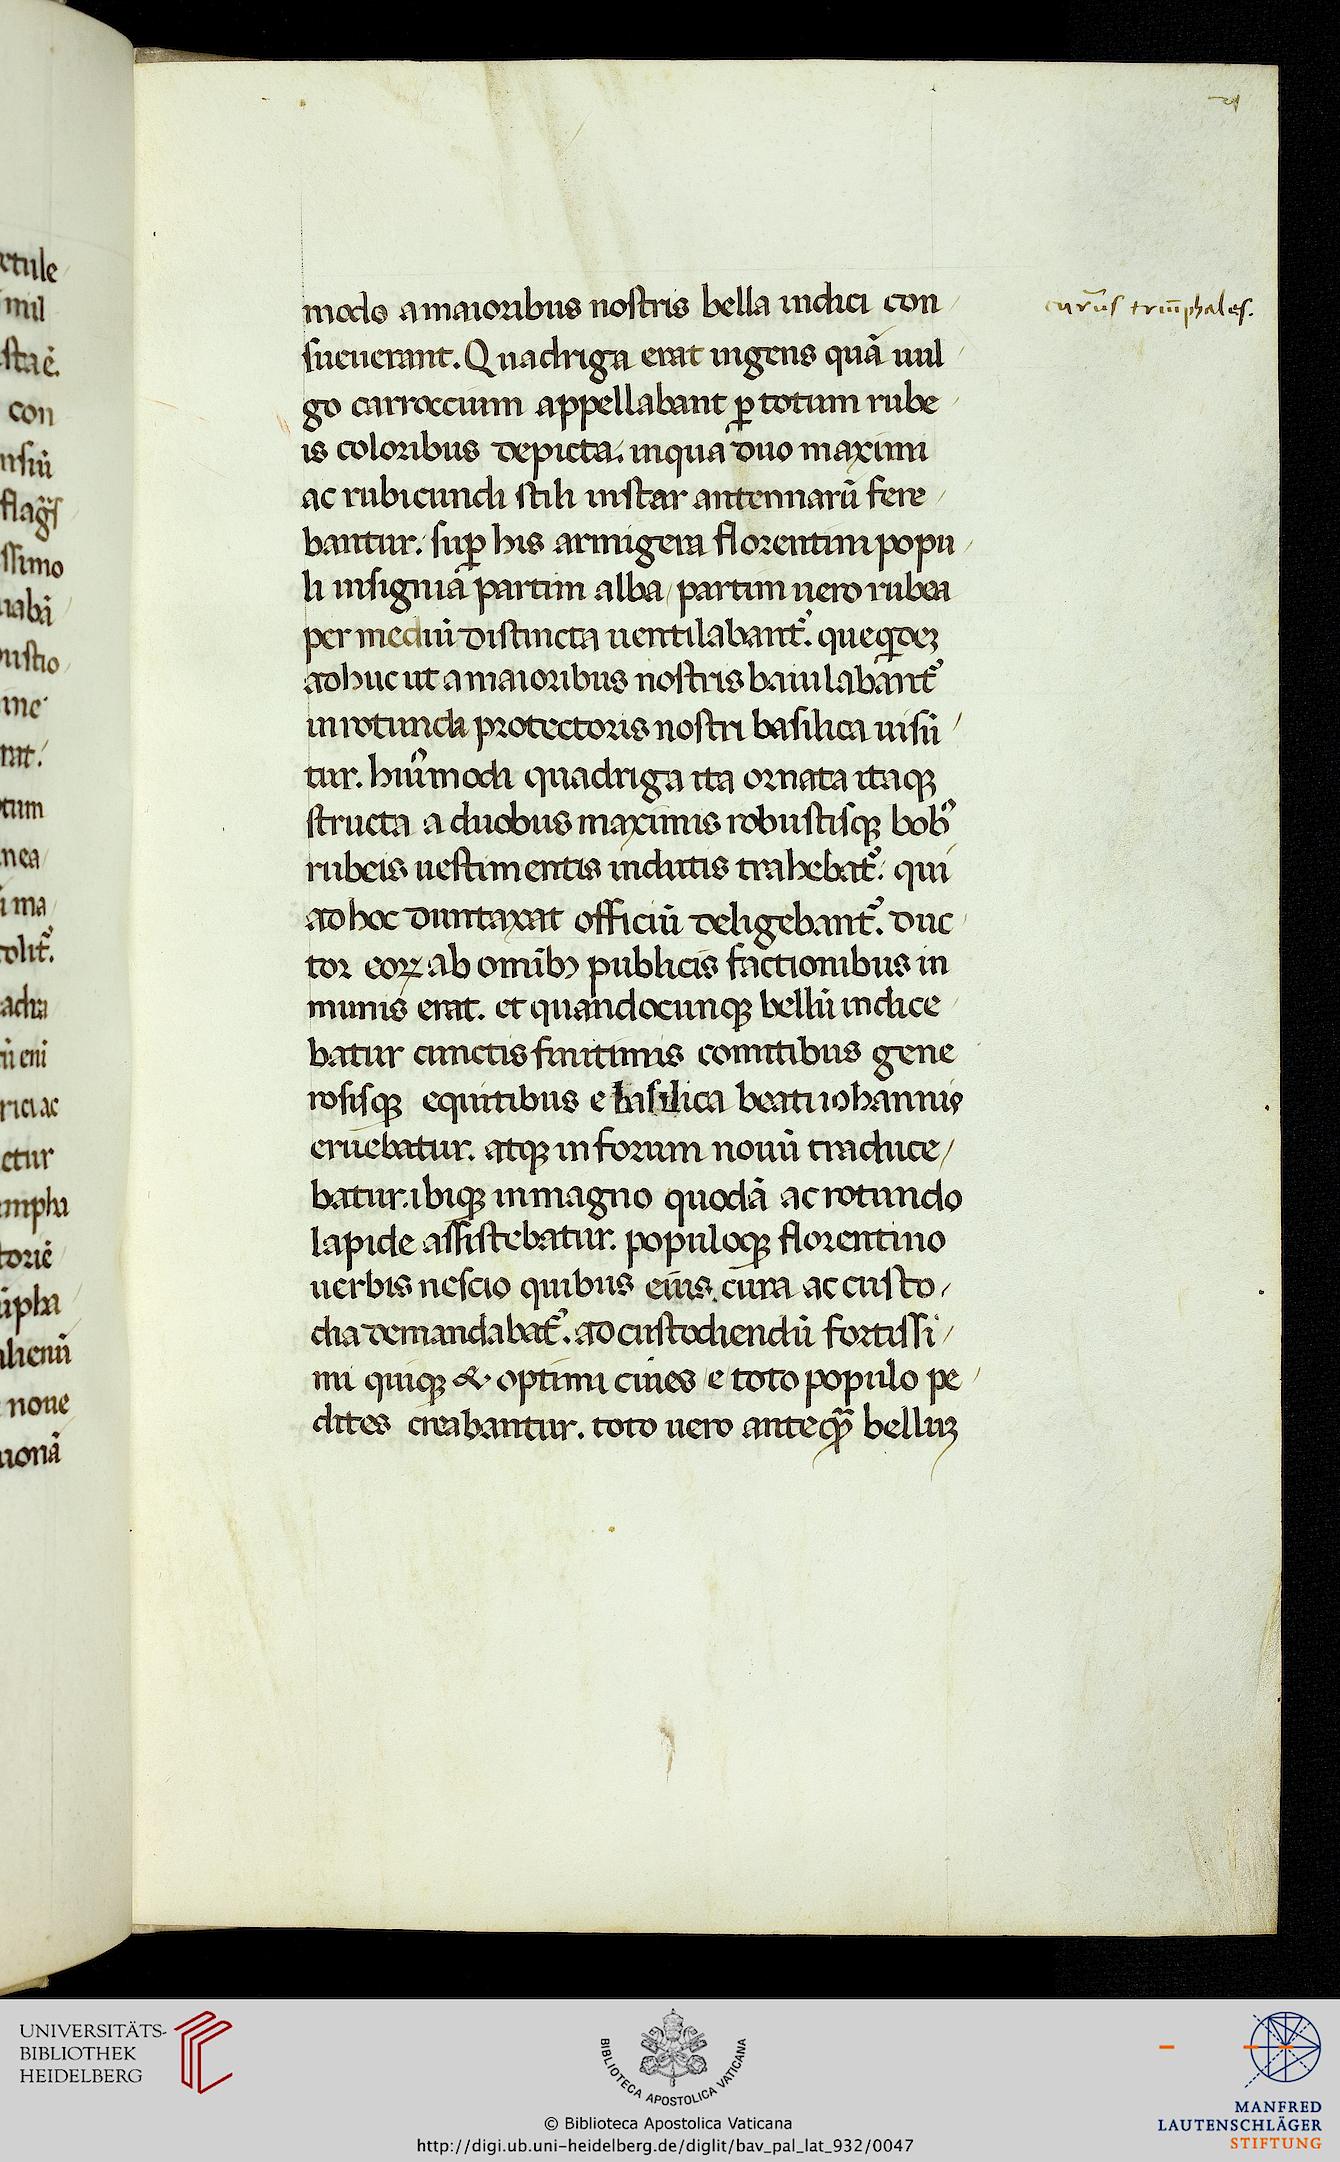 modo a maioribus nostris bella indici con
sueuerant. Quadriga erat ingens quā uul
go carroccium appellabant ꝑ totum rube
is coloribus depicta. in qua duo maximi
ac rubicundi stili instar antennarū fere
bantur. suꝑ his armigera florentini popu
li insignia partim alba / partim uero rubea
per mediū distincta uentilabant᷒. que qͥdeꝫ
ad huc ut a maioribus nostris baiulabant᷒
in rotunda protectoris nostri basilica uisū
tur. hiūmodi quadriga ita ornata itaqꝫ
structa a duobus maximis robustisqꝫ bob᷒
rubeis uestimentis indutis trahebat᷒. qui
ad hoc duntaxat officiū deligebant᷒. Duc
tor eoꝝ ab omībꝫ publicis factionibus in
munis erat. et quandocunqꝫ bellū indice
batur cunctis finitimis comitibus gene
rosisqꝫ equitibus e basilica beati iohannis
eruebatur. atqꝫ in forum nouū traduce
batur. ibiqꝫ in magno quodā ac rotundo
lapide assistebatur. populoqꝫ florentino
uerbis nescio quibus eius cura ac custo
dia demandabat᷒. ad custodiendū fortissi
mi quiqꝫ & optimi ciues e toto populo pe
dites creabantur. toto uero anteqᷓꝫ belluꝫ
currūs triūphales.
etule
con
ssimo
ustio
tum
nea
ma
etur
mpha
noue
UNIVERSITÄTS-
BIBLIOTHEK
HEIDELBERG
BIBLIOTECA APOSTOLICA VATICANA
© Biblioteca Apostolica Vaticana
http://digi.ub.uni-heidelberg.de/diglit/bav_pal_lat_932/0047
MANFRED
LAUTENSCHLÄGER
STIFTUNG